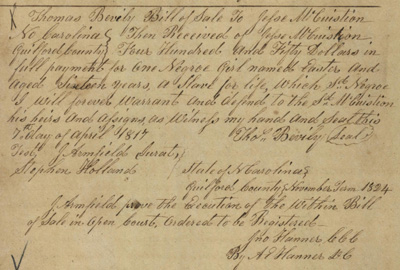 Thomas Bevily Bill of Sale To Jesse McCuistion
No Carolina Then Received of Jesse McCuistion
Guilford County Four Hundred And Fifty Dollars in
full payment for One Negroe Girl named Easter And
Aged Sixteen Years, a Slave for life, Which Sd Negroe
I will forever Warrant And Defend to the Sd McCuistion
his heirs And Assigns as Witness my hand and Seal this
7th day of April 1817 Thos Bevily (Seal)
Test J Armfield Jurat
Stephen Holland State of N Carolina
Guilford County November Term 1824
J Armfield prove the Execution of the Within Bill
of Sale in Open Court, Ordered to be Registered
Jno Hanner C C C
By A E Hanner D C